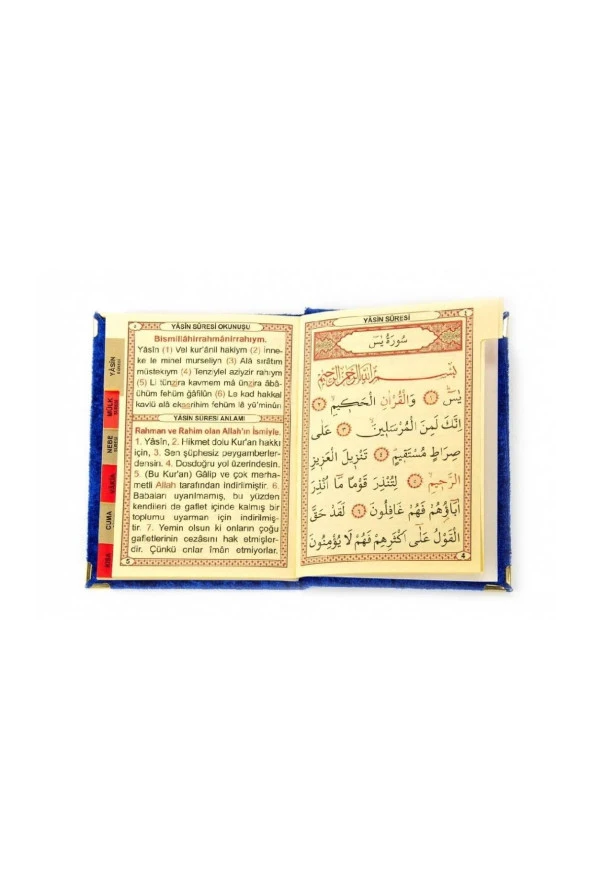 YÂSİN SÛRESİ OKUNUŞU
Bismillâhirrahmânirrahıym.
Yâsîn (1) Vel kur'ânil hakîym (2) İnne-
ke le minel murseliyn (3) Alâ sırâtım
müstekıym (4) Tenziylel aziyzir rahıym
(5) Li tünzira kavmem mâ ünzira âbâ-
ühüm fehüm gâfilûn (6) Le kad hakkal
kavlü alâ ekserihim fehüm lâ yü'minûn
YÂSİN SÛRESİ ANLAMI
Rahman ve Rahim olan Allah'ın İsmiyle.
1. Yâsîn, 2. Hikmet dolu Kur'an hakkı
için, 3. Sen şüphesiz peygamberler-
densin. 4. Dosdoğru yol üzerindesin.
5. (Bu Kur'an) Gâlip ve çok merha-
metli Allah tarafından indirilmiştir. 6.
Babaları uyarılmamış, bu yüzden
kendileri de gaflet içinde kalmış bir
toplumu uyarman için indirilmiş-
tir. 7. Yemin olsun ki onların çoğu
gafletlerinin cezasını hak etmişler-
dir. Çünkü onlar îmân etmiyorlar.
5
YÂSİN
SÛRESİ
MÜLK
SÛRESİ
NEBE
SÛRESİ
CUMA
YÂSİN SÛRESİ
سُورَةُ يٰسٓ
بِسْمِ اللّٰهِ الرَّحْمٰنِ الرَّحِيمِ
يٰسٓ ﴿١﴾ وَالْقُرْاٰنِ الْحَكِيمِ ﴿٢﴾
اِنَّكَ لَمِنَ الْمُرْسَلِينَ ﴿٣﴾ عَلٰى
صِرَاطٍ مُسْتَقِيمٍ ﴿٤﴾ تَنْزِيلَ الْعَزِيزِ
الرَّحِيمِ ﴿٥﴾ لِتُنْذِرَ قَوْمًا مَٓا اُنْذِرَ
اٰبَٓاؤُ۬هُمْ فَهُمْ غَافِلُونَ ﴿٦﴾ لَقَدْ حَقَّ
الْقَوْلُ عَلٰٓى اَكْثَرِهِمْ فَهُمْ لَا يُؤْمِنُونَ
4